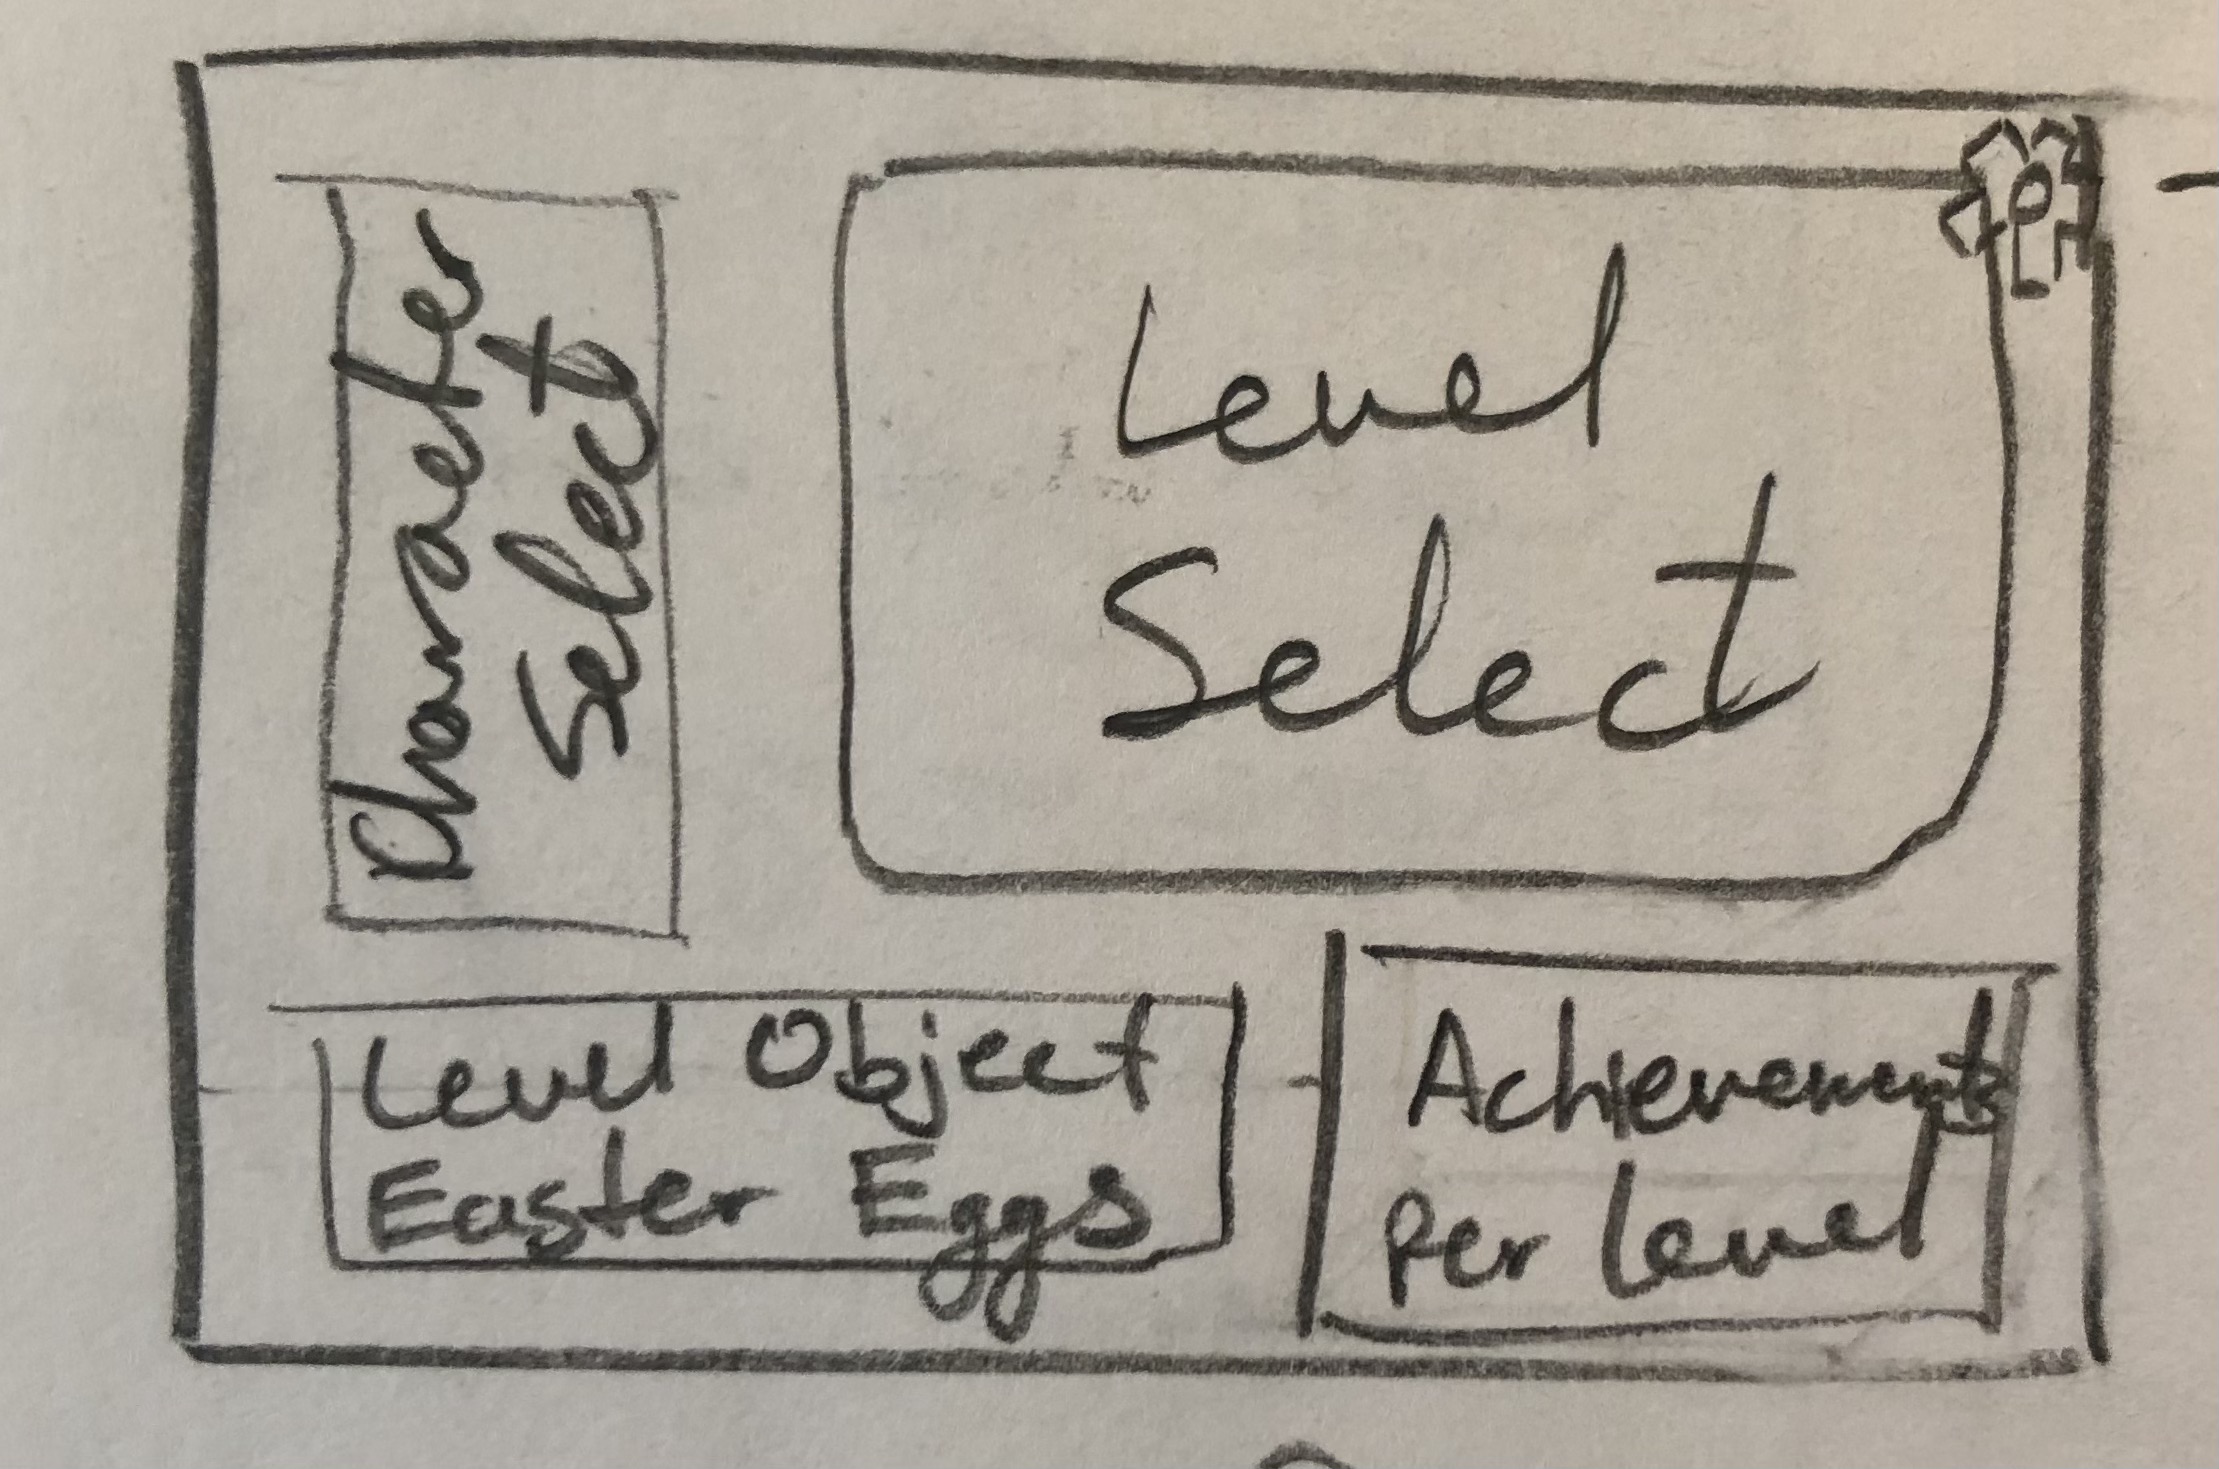 Character
Select
Level
Select
Level Object
Easter Eggs
Achievements
Per Level